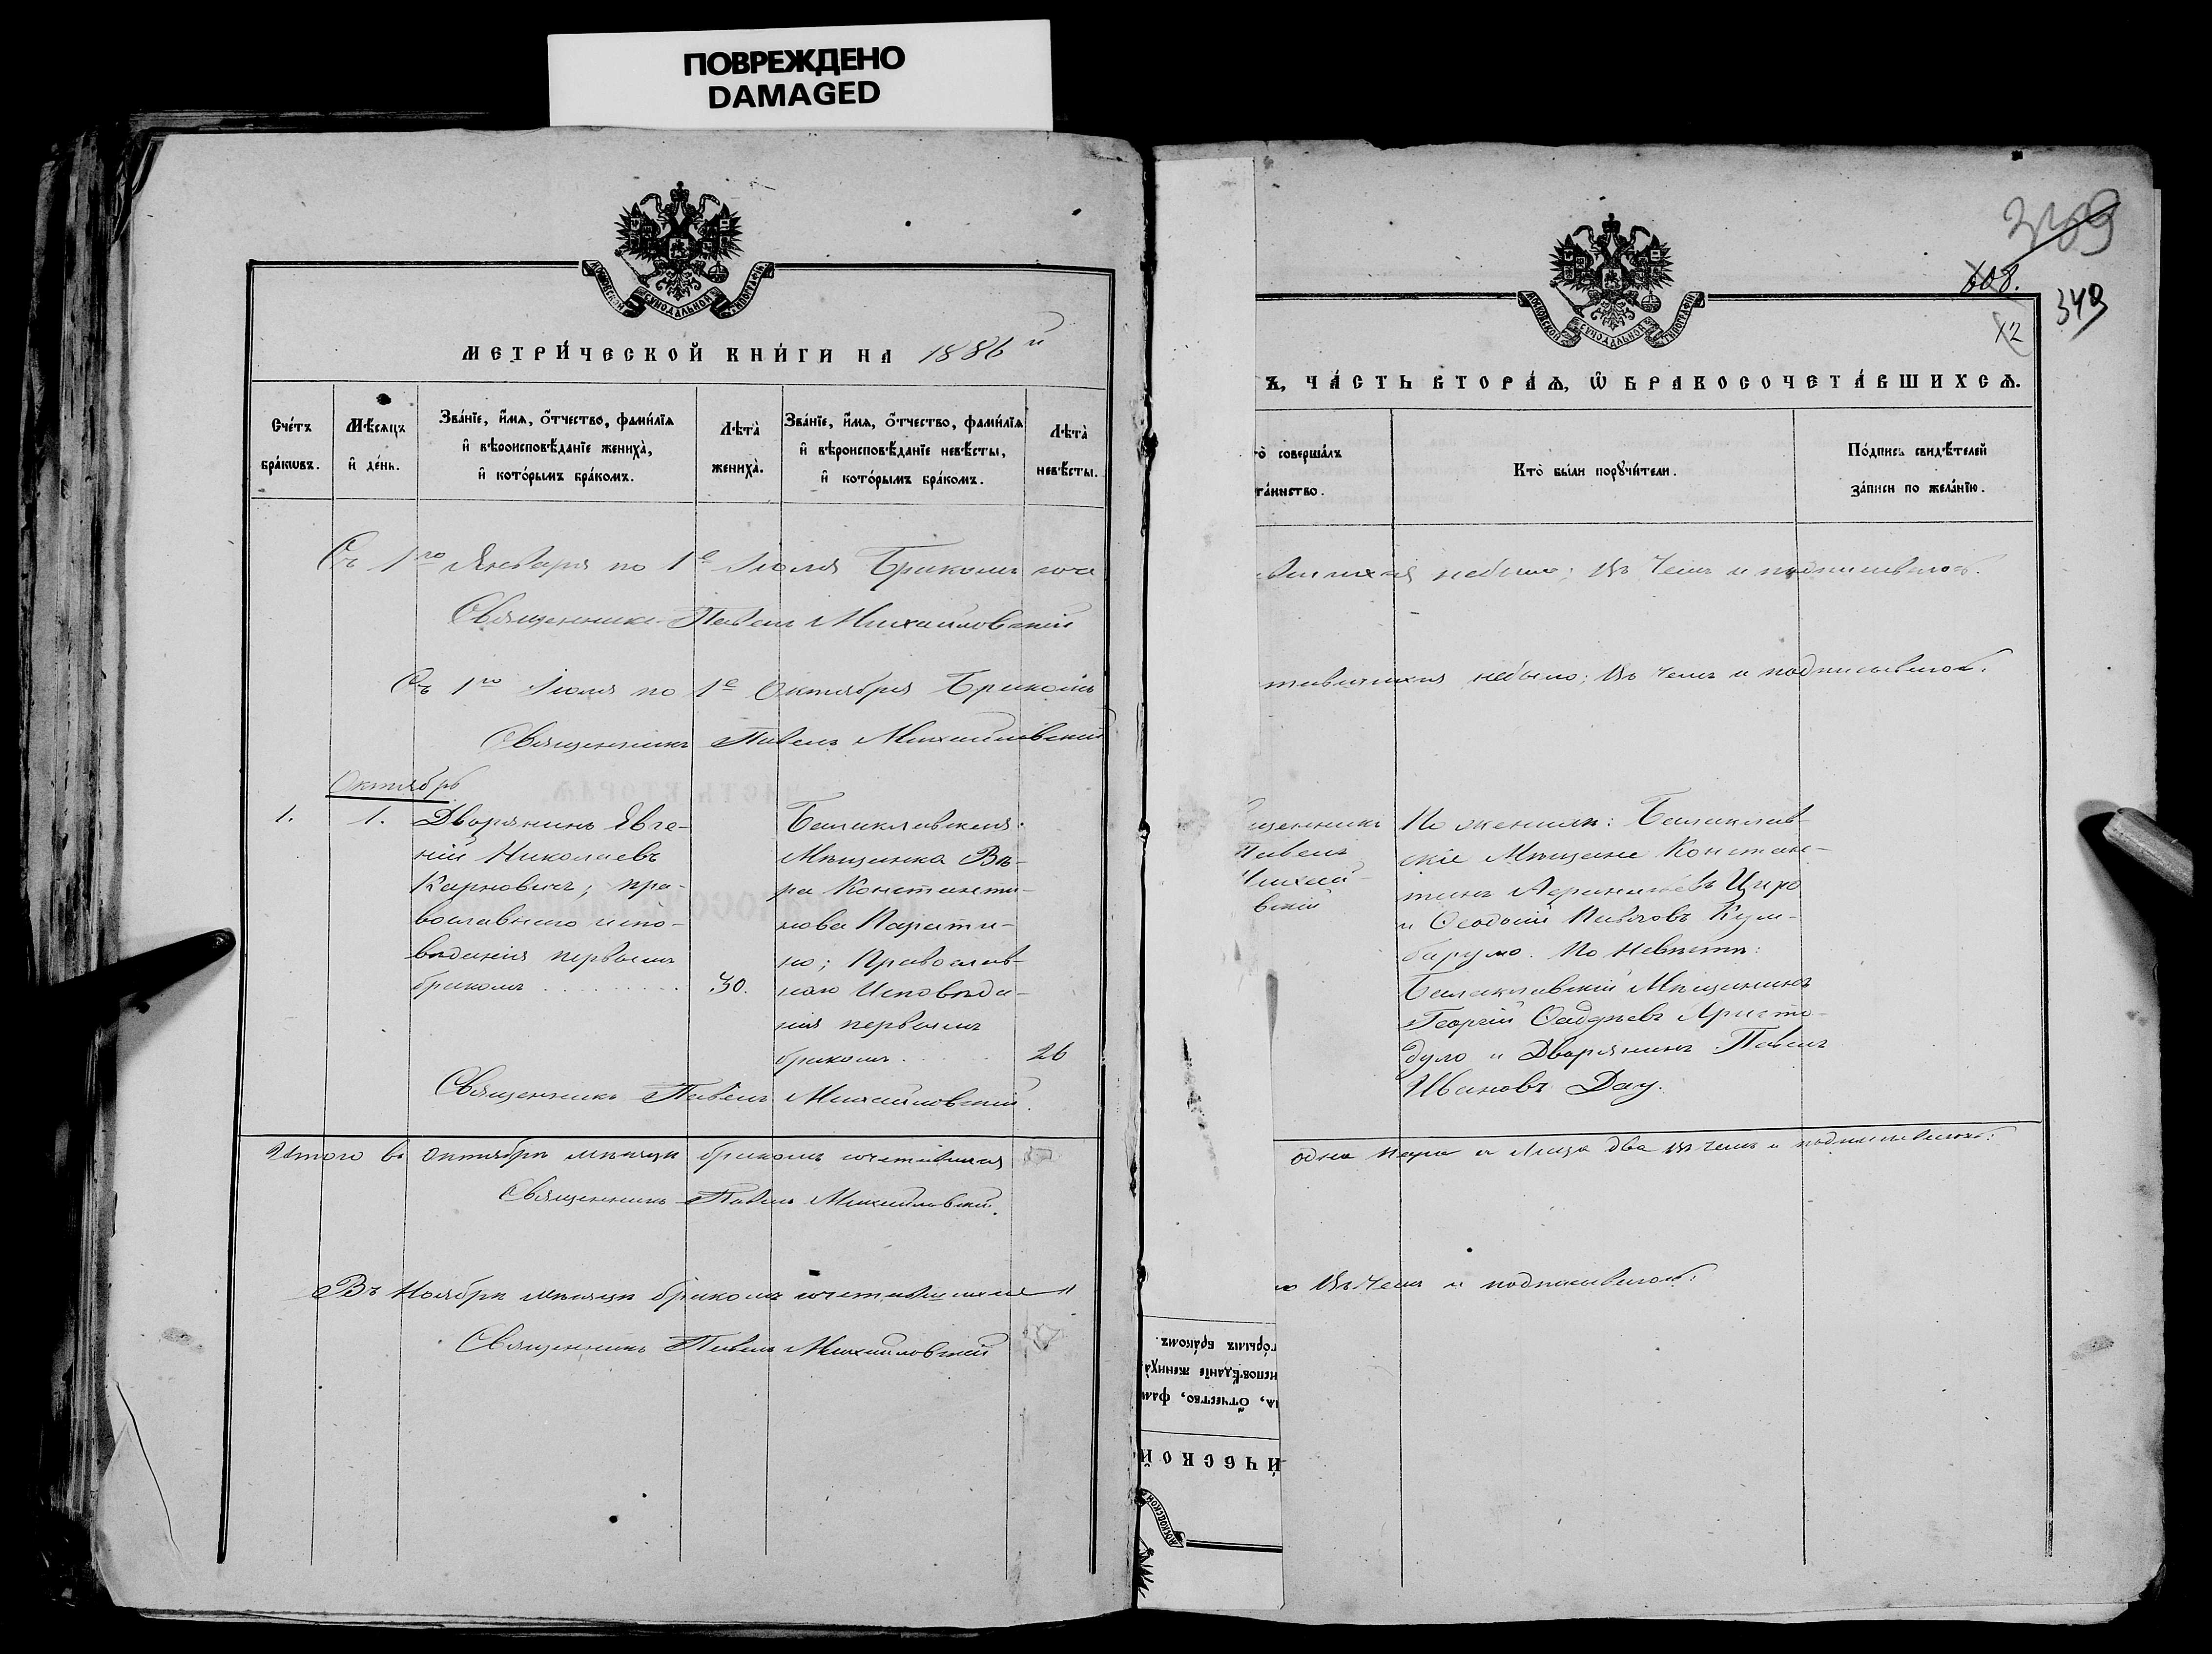 ПОВРЕЖДЕНО
DAMAGED
МОСКОВСКОЙ СѴНОДАЛЬНОЙ ТИПОГРАФІИ
МЕТРИ́ЧЕСКОЙ КНИ́ГИ НА 1886 й
Сче́тъ бра́кѡвъ.
Мѣ́сяцъ и҆ де́нь.
Зва́нїе, и҆́мѧ, ѻ҆́тчество, фами́лїѧ
и҆ вѣроисповѣ́данїе жениха̀,
и҆ кото́рымъ бра́комъ.
Лѣта̀ жениха̀.
Зва́нїе, и҆́мѧ, ѻ҆́тчество, фами́лїѧ
и҆ вѣроисповѣ́данїе невѣ́сты,
и҆ кото́рымъ бра́комъ.
Лѣта̀ невѣ́сты.
Съ 1го Января по 1е Іюля Бракомъ соче
Священникъ Павелъ Михайловскій
Съ 1го Іюля по 1е Октября Бракомъ
Священникъ Павелъ Михайловскій
Октябрь
1.
1.
Дворянинъ Евге-
ній Николаевъ
Карновичъ; пра-
вославнаго испо-
веданія первымъ
бракомъ
30.
Балаклавская
Мѣщанка Вѣ-
ра Константи-
нова Парати-
но; Православ-
наго Исповѣда-
нія первымъ
бракомъ
26
Священникъ Павелъ Михайловскій.
Итого въ Октябрѣ мѣсяцѣ бракомъ сочетавшихся
Священникъ Павелъ Михайловскій.
Въ Ноябрѣ мѣсяцѣ бракомъ сочетавшихся
Священникъ Павелъ Михайловскій
608.
349
12
МОСКОВСКОЙ СѴНОДАЛЬНОЙ ТИПОГРАФІИ
Ъ, ЧА́СТЬ ВТОРА́Ѧ, Ѡ҆ БРАКОСОЧЕТА́ВШИХСѦ.
то̀ соверша́лъ
та́инство.
Кто̀ бы́ли порꙋчи́тели.
По́дпись свидѣ́телей
за́писи по жела́нїю.
вшихся небыло; Въ чемъ и подписываюсь.
тавшихся небыло; Въ чемъ и подписываюсь.
щенникъ
Павелъ
Михай-
вскій
По женихѣ: Балаклав-
скіе Мѣщане Констан-
тинъ
и Ѳеодосій Павловъ Кум-
баруло. По Невѣстѣ:
Балаклавскій Мѣщанинъ
Георгій Ѳадѣевъ Аристо-
дуло и Дворянинъ Павелъ
Ивановъ Дау.
одна пара а Лица два въ чемъ и подписываюсь:
Въ чемъ и подписываюсь:
то́рымъ бра́комъ.
исповѣ́данїе жениха̀
ѧ, ѻ҆́тчество, фам
И́ЧЕСКОЙ
МОСКОВСКОЙ